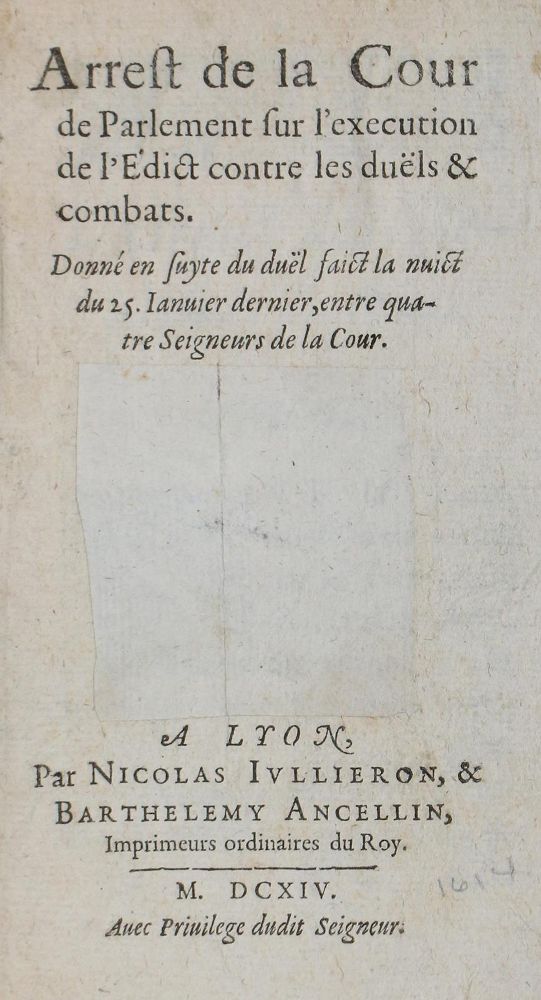 Arreſt de la Cour
de Parlement ſur l'execution
de l'Edict contre les duëls &
combats.
Donné en ſuyte du duël faict la nuict
du 25. Ianuier dernier, entre qua-
tre Seigneurs de la Cour.
A LYON,
Par NICOLAS IVLLIERON, &
BARTHELEMY ANCELLIN,
Imprimeurs ordinaires du Roy.
M. DCXIV.
1614
Auec Priuilege dudit Seigneur.